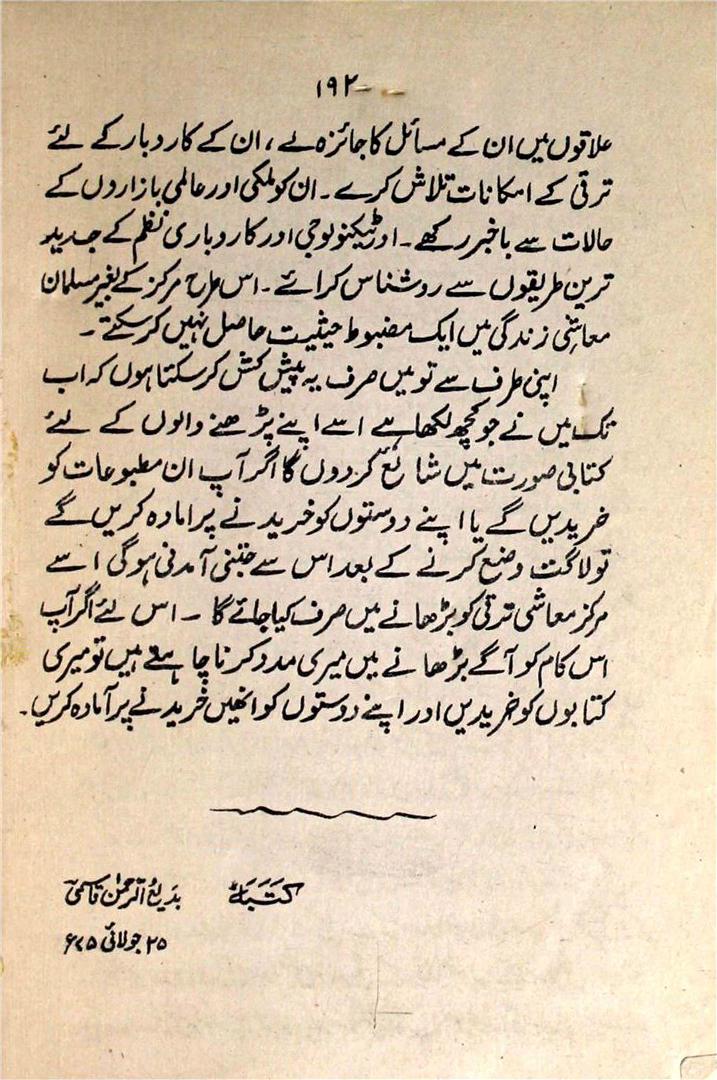 ۱۹۲
علاقوں میں ان کے مسائل کا جائزہ لے، ان کے کاروبار کے لئے
ترقی کے امکانات تلاش کرے۔ ان کو ملکی اور عالمی بازاروں کے
حالات سے باخبر رکھے۔ اور ٹیکنولوجی اور کاروباری نظم کے جدید
ترین طریقوں سے روشناس کرائے۔ اس طرح مرکز کے بغیر مسلمان
معاشی زندگی میں ایک مضبوط حیثیت حاصل نہیں کر سکتے۔
اپنی طرف سے تو میں صرف یہ پیش کش کر سکتا ہوں کہ اب
تک میں نے جو کچھ لکھا ہے اسے اپنے پڑھنے والوں کے لئے
کتابی صورت میں شائع کر دوں گا اگر آپ ان مطبوعات کو
خریدیں گے یا اپنے دوستوں کو خریدنے پر امادہ کریں گے
تو لاگت وضع کرنے کے بعد اس سے جتنی آمدنی ہوگی اسے
مرکز معاشی ترقی کو بڑھانے میں صرف کیا جائے گا۔ اس لئے اگر آپ
اس کام کو آگے بڑھانے میں میری مدد کرنا چاہتے ہیں تو میری
کتابوں کو خریدیں اور اپنے دوستوں کو انھیں خریدنے پر آمادہ کریں۔
بدیع الرحمٰن قاسمی
۲۵ جولائی